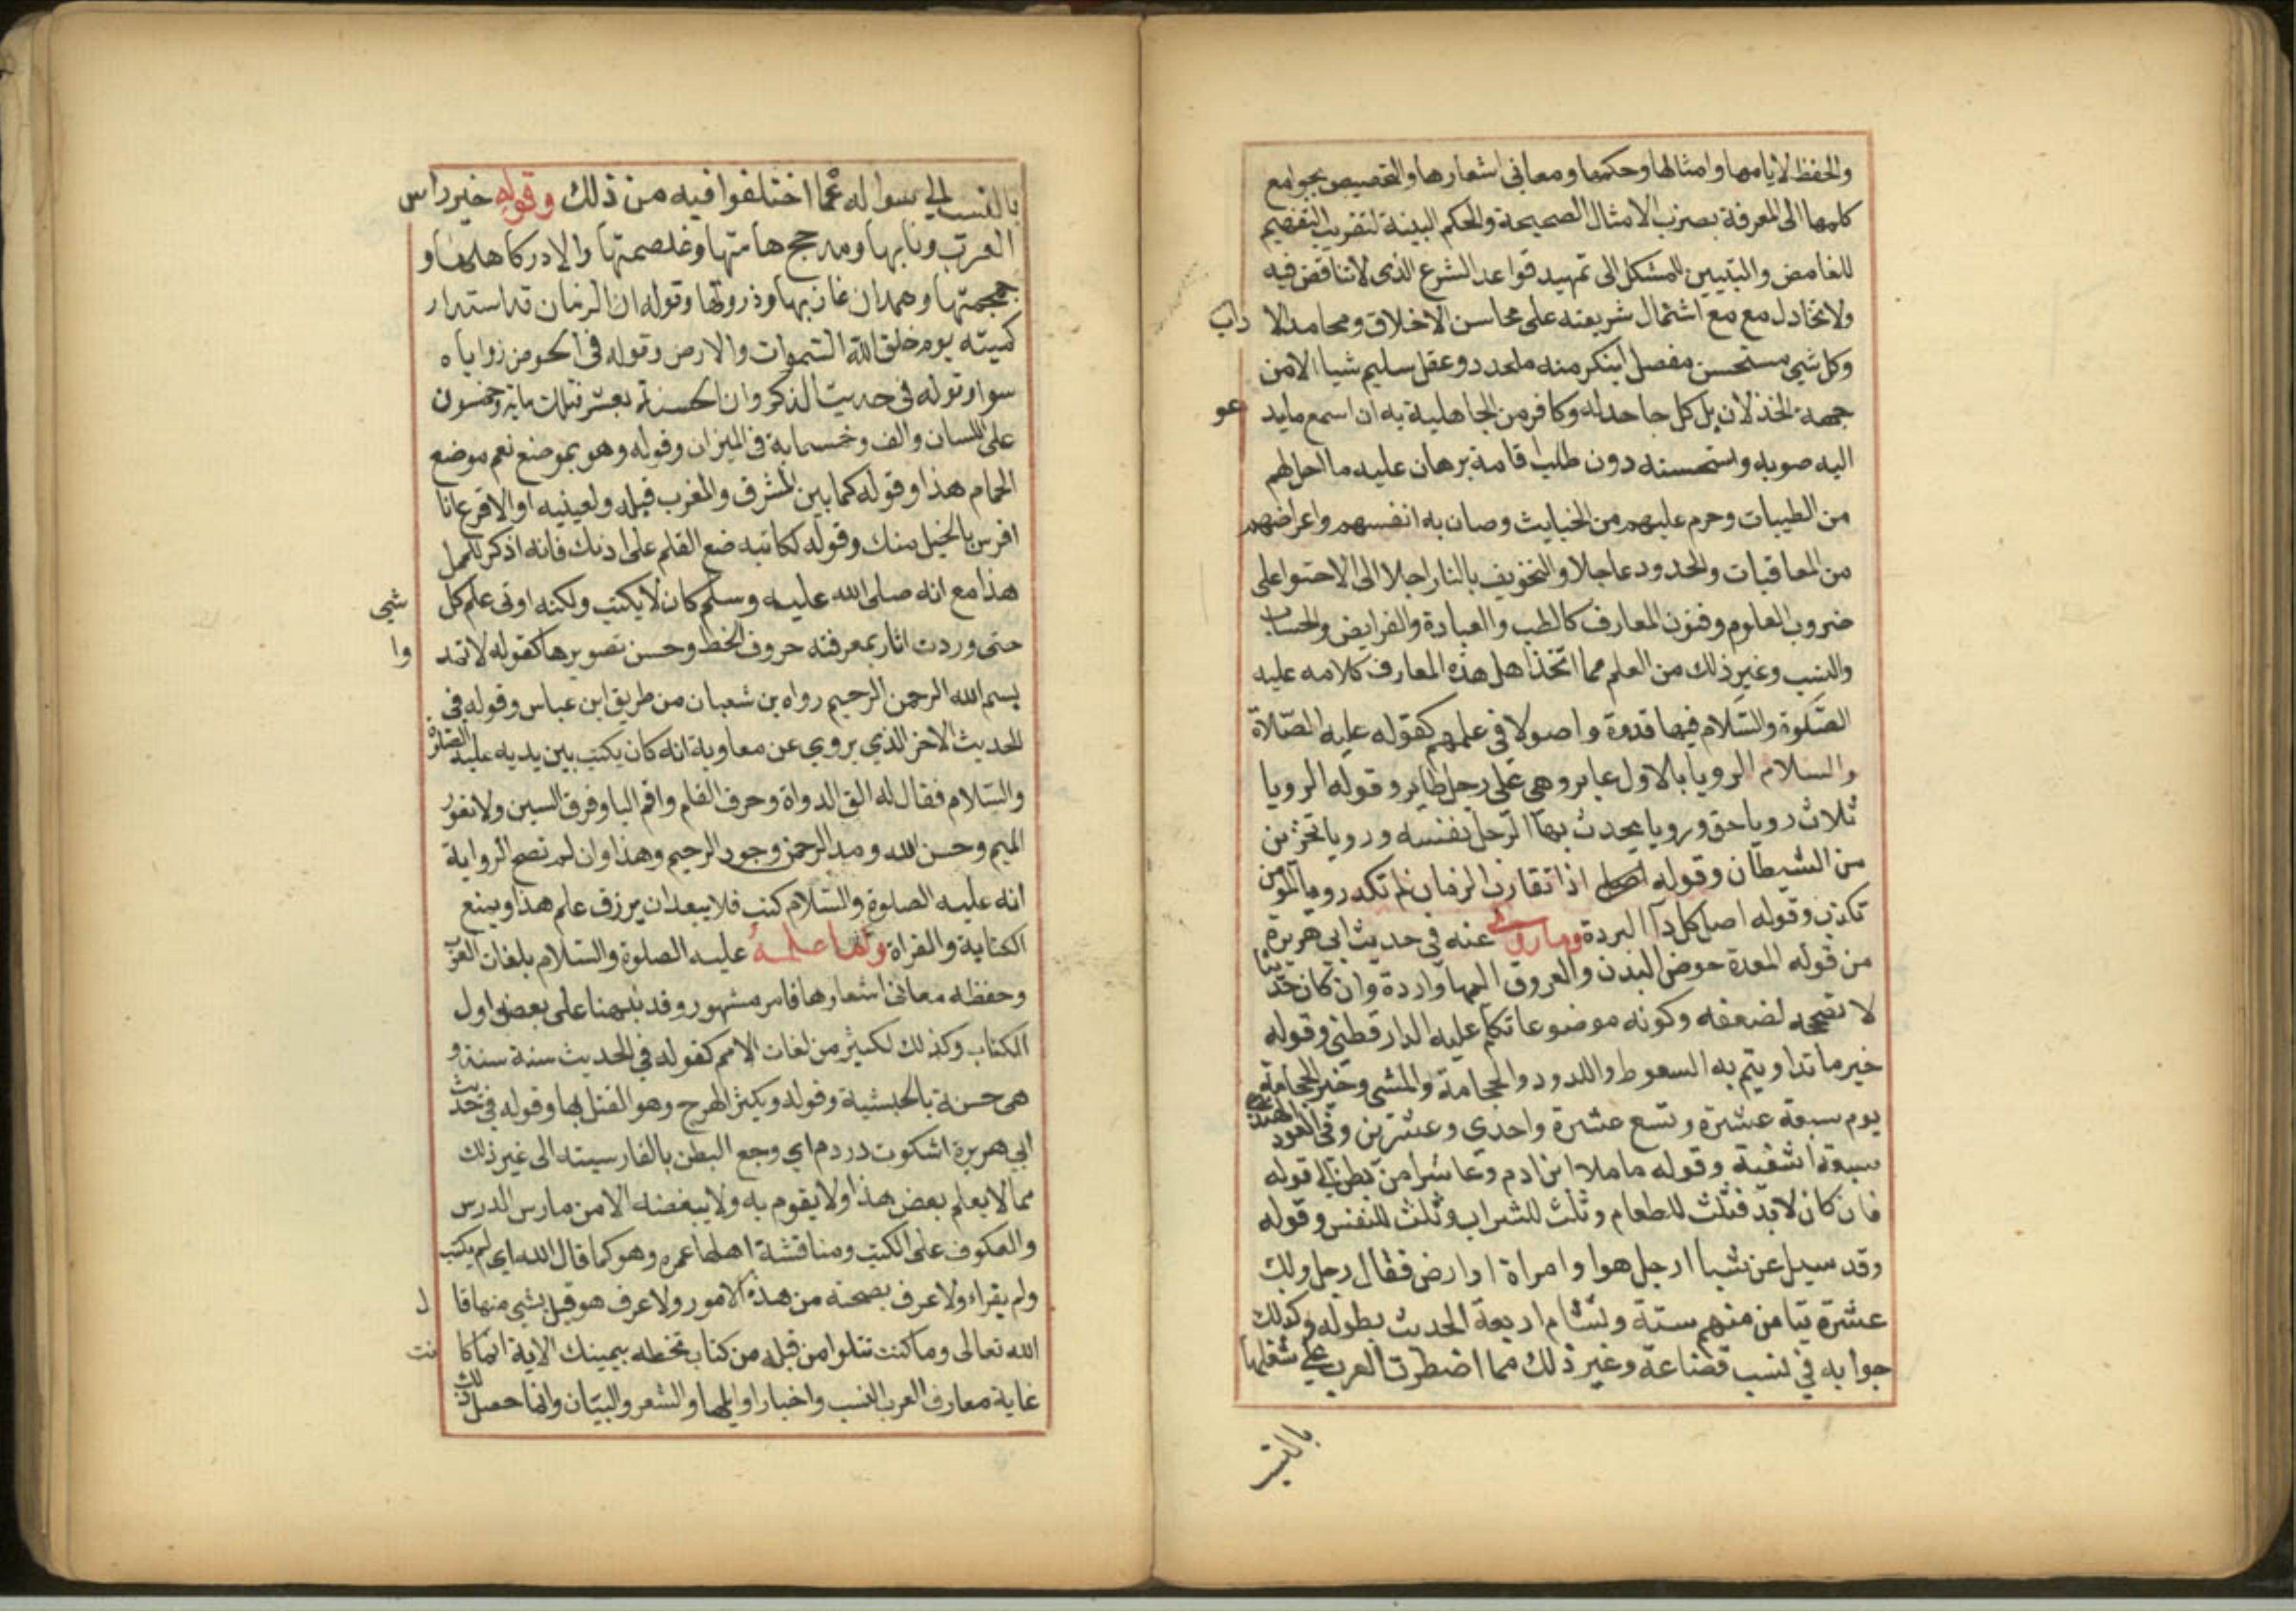 والحفظ لايامها وامثالها وحكمها ومعانى اشعارها والتخصيص بجوامع
كلمها الى المعرفة بضرب الامثال الصحيحة والحكم البينة لتقريب التفهيم
للغامض والتبيين للمشكل الى تمهيد قواعد الشرع الذى لاتناقض فيه
ولاتخاذل مع مع اشتمال شريعته على محاسن الاخلاق ومحامد الا داب
وكل شى مستحسن مفصل لينكر منه ملحد ذو عقل سليم شيا الا من
جهة الخذلان بل كل جاحد له وكافر من الجاهلية به اذ اسمع مايد عو
اليه صوبه واستحسنه دون طلب اقامة برهان عليه ما احل لهم
من الطيبات وحرم عليهم من الخبايث وصان به انفسهم واعراضهم
من المعاقبات والحدود عاجلا والتخويف بالنار اجلا الى الاحتوا على
ضروب العلوم وفنون المعارف كالطب والعبادة والفرايض والحساب
والنسب وغير ذلك من العلم مما اتخذ اهل هذه المعارف كلامه عليه
الصلوة والسلام فيها قدوة واصولا فى علمهم كقوله عليه الصلاة
والسلام الرويا بالاول عابر وهى على رجل طاير وقوله الرويا
ثلاث رويا حق ورويا يحدث بها الرجل نفسه ورويا تحزين
من الشيطان وقوله اذا تقارب الزمان لم تكد رويا المومن
تكذب وقوله اصل كل دآ البردة وما روى عنه فى حديث ابى هريرة
من قوله المعدة حوض البدن والعروق اليها واردة وان كان حديثا
لا نصححه لضعفه وكونه موضوعا تكلم عليه الدارقطنى وقوله
خير ما تداويتم به السعوط واللدود والحجامة والمشى وخير الحجامة
يوم سبعة عشرة وتسع عشرة واحدى وعشرين وفى العود الهندى
سبعة اشفية وقوله ماملا ابن ادم وعا شرا من بطن الى قوله
فان كان لابد فثلث للطعام وثلث للشراب وثلث للنفس وقوله
وقد سيل عن سبا ارجل هوا وامراة ا وارض فقال رجل ولد
عشرة تيامن منهم ستة وتشام اربعة الحديث بطوله وكذلك
جوابه فى نسب قضاعة وغير ذلك مما اضطرت العرب على شغلها
بالنسب
بالنسب الى سواله عما اختلفوا فيه من ذلك وقوله حمير راس
العرب ونابها ومذحج هامتها وغلصمتها والازد كاهلها و
جمجمتها وهمدان غاربها وذروتها وقوله ان الزمان قد استدار
كهيئته يوم خلق الله السموات والارض وقوله فى الحوض زواياه
سوا وقوله فى حديث الذكر وان الحسنة بعشر فتلك ماية وخمسون
على اللسان والف وخمسماية فى الميزان وقوله وهو بموضع نعم موضع
الحمام هذا وقوله كما بين المشرق والمغرب قبلة ولعيينه او الاقرع انا
افرس بالخيل منك وقوله لكاتبه ضع القلم على اذنك فانه اذكر للممل
هذا مع انه صلى الله عليه وسلم كان لايكتب ولكنه اوتى علم كل شى
حتى وردت اثار بمعرفته حروف الخط وحسن تصويرها كقوله لاتمد وا
بسم الله الرحمن الرحيم رواه بن شعبان من طريق ابن عباس وقوله فى
الحديث الاخر الذي يروي عن معاوية انه كان يكتب بين يديه عليه الصلوة
والسلام فقال له الق الدواة وحرف القلم واقم البا وفرق السين ولاتعور
الميم وحسن الله ومد الرحمن وجود الرحيم وهذا وان لم تصح الرواية
انه عليه الصلوة والسلام كتب فلايبعد ان يرزق علم هذا ويمنع
الكتابة والقراة واما علمه عليه الصلوة والسلام بلغات العرب
وحفظه معانى اشعارها فامر مشهور وقد نبهنا على بعضه اول
الكتاب وكذلك لكثير من لغات الامم كقوله فى الحديث سنة سنة و
هى حسنة بالحبشية وقوله ويكثر الهرج وهو القتل بها وقوله فى حديث
ابي هريرة اشكوت دردم اي وجع البطن بالفارسيته الى غير ذلك
مما لايعلم بعض هذا ولايقوم به ولاببعضه الا من مارس الدرس
والعكوف على الكتب ومناقشة اهلها عمره وهو كما قال الله امي لم يكتب
ولم يقراء ولاعرف بصحبته من هذه الامور ولاعرف هو قبل بشى منها قا ل
الله تعالى وما كنت تتلوا من قبله من كتاب ولا تخطه بيمينك الاية انما كا نت
غاية معارف العرب النسب واخبار اوايلها والشعر والبيان وانما حصل ذلك